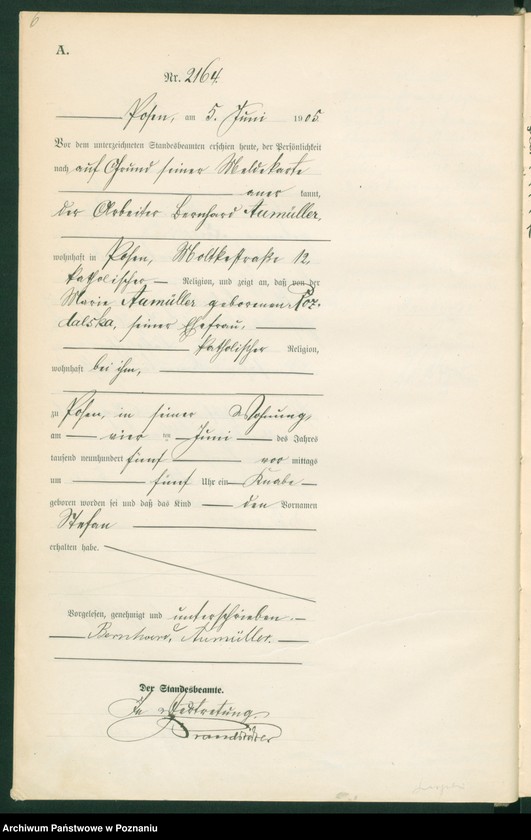 6
A.
Nr. 2164.
Posen, am 5. Juni 1905
Vor dem unterzeichneten Standesbeamten erschien heute, der Persönlichkeit
nach auf Grund seiner Meldekarte
aner kannt,
der Arbeiter Bernhard Aumüller,
wohnhaft in Posen, Moltkestraße 12,
katholischer Religion, und zeigt an, daß von der
Marie Aumüller geborenen Koz-
dalska, seiner Ehefrau,
katholischer Religion,
wohnhaft bei ihm,
zu Posen, in seiner Wohnung,
am vier ten Juni des Jahres
tausend neunhundert fünf vor mittags
um fünf Uhr ein Knabe
geboren worden sei und daß das Kind den Vornamen
Stefan
erhalten habe.
Vorgelesen, genehmigt und unterschrieben.
Bernhard Aumüller.
Der Standesbeamte.
In Vertretung.
Archiwum Państwowe w Poznaniu